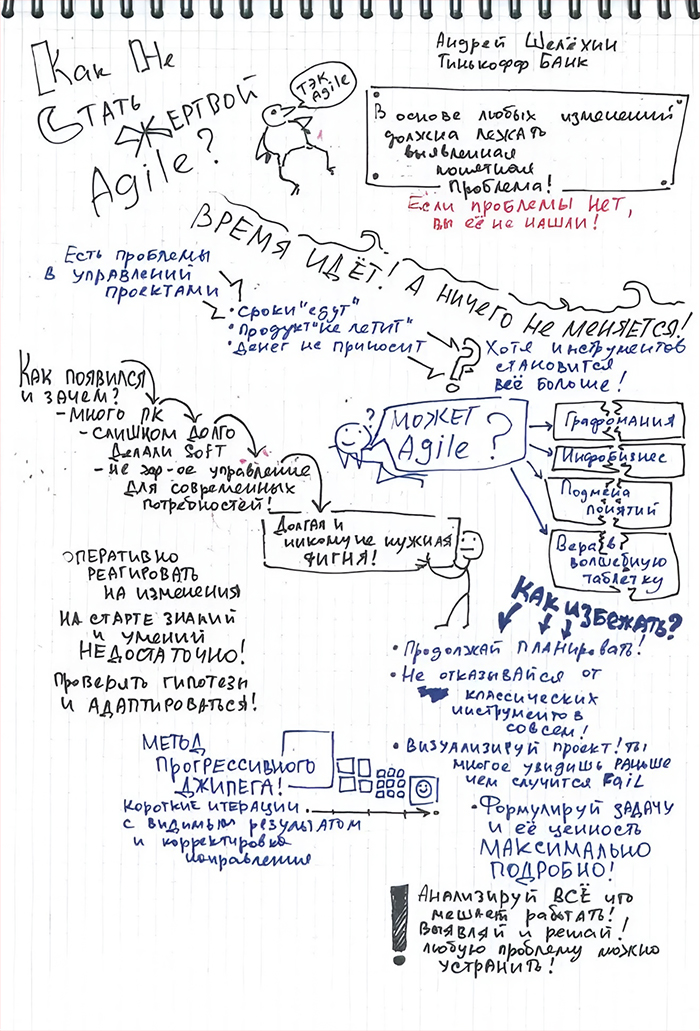 Как Не
Стать
Жертвой
Agile?
ТЭК
Agile
Андрей Шелёхин
Тинькофф БАНК
В основе любых изменений
должна лежать
выявленная
понятная
Проблема!
Если проблемы нет,
вы её не нашли!
ВРЕМЯ ИДЁТ! А НИЧЕГО НЕ МЕНЯЕТСЯ!
Есть проблемы
в управлений
проектами
• Сроки "едут"
• Продукт "не летит"
• Денег не приносит
?
Хотя инструментов
становится
всё больше!
Как появился
и зачем?
- много ПК
- слишком долго
делали Soft
- не хор-ое управление
для современных
потребностей!
?
МОЖЕТ
Agile?
Графомания
Инфобизнес
Подмена
понятий
Вера в
волшебную
таблетку
Долгая и
никому не нужная
фигня!
Оперативно
реагировать
на изменения
На старте знаний
и умений
НЕДОСТАТОЧНО!
Проверять гипотезы
и адаптироваться!
КАК ИЗБЕЖАТЬ?
• Продолжай планировать!
• Не отказывайся от
классических
инструментов
совсем!
• Визуализируй проект! ты
многое увидишь раньше
чем случится Fail
• Формулируй задачу
и её ценность
МАКСИМАЛЬНО
ПОДРОБНО!
МЕТОД
ПРОГРЕССИВНОГО
ДЖИПЕГА!
Короткие итерации
с видимым результатом
и корректировка
направления
! Анализируй ВСЁ что
мешает работать!
Выявляй и решай!
любую проблему можно
устранить!